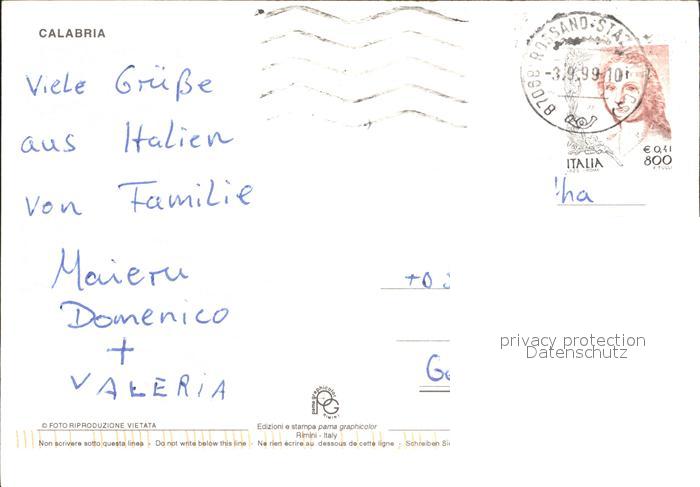 CALABRIA
87068 ROSSANO-STAZ
-3.9.99-10
€ 0,41
ITALIA 800
Viele Grüße
aus Italien
von Familie
Maieru
Domenico
+
VALERIA
privacy protection
Datenschutz
pama graphicolor
PG
RIMINI
© FOTO RIPRODUZIONE VIETATA
Edizioni e stampa pama graphicolor
Rimini - Italy
Non scrivere sotto questa linea - Do not write below this line - Ne rien écrire au dessous de cette ligne - Schreiben